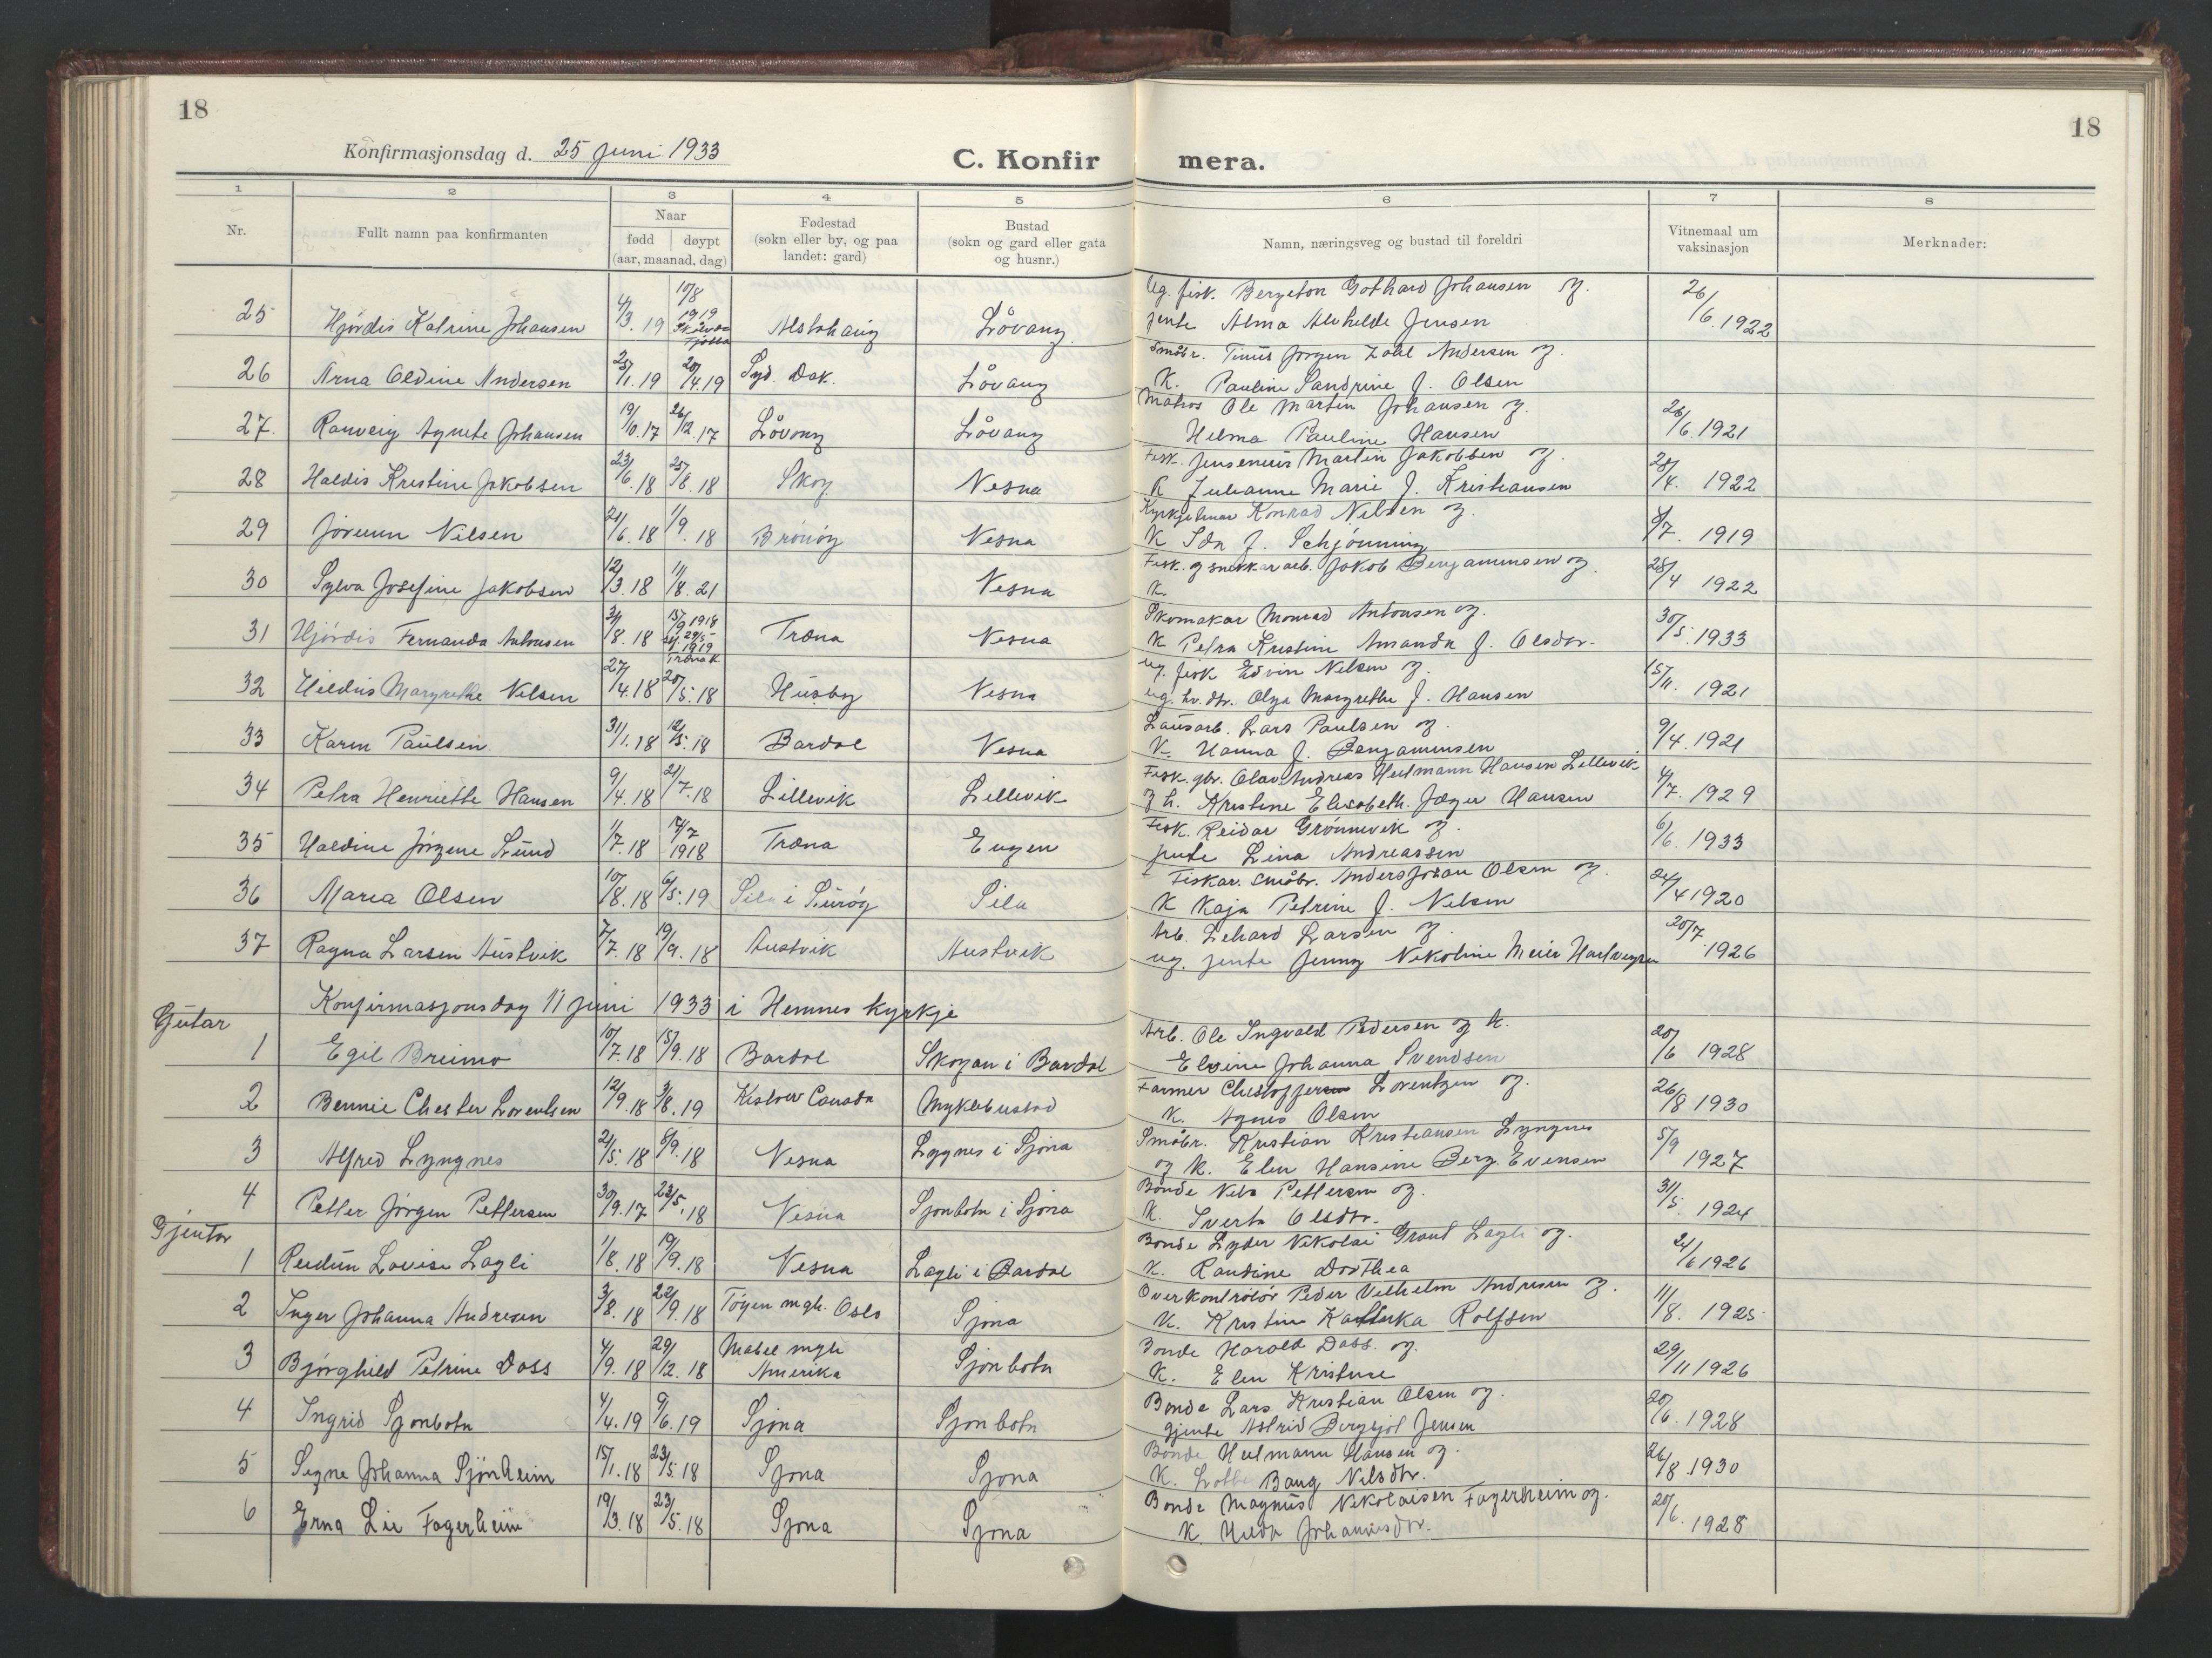 18
18
Konfirmasjonsdag d. 25 juni 1933
C. Konfir mera.
1 2 3 4 5 6 7 8
Nr.
Fullt namn paa konfirmanten
Naar
fødd døypt
(aar, maanad, dag)
Fødestad
(sokn eller by, og paa
landet: gard)
Bustad
(sokn og gard eller gata
og husnr.)
Namn, næringsveg og bustad til foreldri
Vitnemaal um
vaksinasjon
Merknader:
25 Hjørdis Katrine Johansen 4/3. 19 10/8 1919 Alstahaug Løvang Ug. fisk. Bergeton Gothard Johansen og
jente Alma Alvhelde Jensen 26/6. 1922
26 Arna Oldine Andersen 25/1. 19 20/4. 19 Løvang Småbr. Tinus Jørgen Zahl Andersen og
K. Pauline Sandrine f. Olsen
27. Ranveig Agnete Johansen 19/10. 17 26/12. 17 Løvang Løvang Matros Ole Martin Johansen og
Helma Pauline Hansen 26/6. 1921
28 Haldis Kristine Jakobsen 23/6. 18 25/8. 18 Skog Nesna Fisk. Jensenius Martin Jakobsen og
K Julianne Marie f. Kristiansen 28/4. 1922
29 Jorunn Nilsen 21/6. 18 1/9. 18 Brønøy Nesna Konrad Nilsen og
K Ida f. Schjønning 9/7. 1919
30 Sylva Josefine Jakobsen 12/3. 18 11/8. 21 Nesna Fisk. og snekkararb. Jakob Benjaminsen og
K. 28/4 1922
31 Hjørdis Fernanda Antonsen 31/8. 18 15/9 1918 Træna Nesna Skomakar Monrad Antonsen og
K Petra Kristine Amanda f. Olsdtr. 30/5. 1933
32 Hildus Margrethe Nilsen 27/4. 18 20/5. 18 Husby Nesna ug. fisk Edvin Nilsen og
ug. hv. dtr. Olga Margrethe f. Hansen 15/11. 1921
33 Karen Paulsen 31/1. 18 12/5. 18 Bardal Nesna Lausarb. Lars Paulsen og
K. Hanna f. Benjaminsen 9/4. 1921
34 Petra Henriette Hansen 9/4. 18 21/7. 18 Lillevik Lillevik Fisk. gbr. Olav Andreas Heilmann Hansen Lillevik
og h. Kristine Elisabeth Jæger Hansen 4/7. 1929
35 Haldine Jørgene Lund 1/7. 18 14/7 1918 Træna Eugen Fisk. Reidar Grønnevik og
jente Lina Andreassen 6/6. 1933
36 Maria Olsen 10/8. 18 6/5. 19 Sila i Lurøy Sila Fiskar. småbr. Anders Johan Olsen og
K Kaja Petrine f. Nilsen 24/4 1920
37 Ragna Larsen Austvik 7/7. 18 19/9. 18 Austvik Austvik Arb. Lehard Larsen og
ug. jente Jenny Nikoline Meier 20/7. 1926
Konfirmasjonsdag 11 juni 1933 i Hemnes kyrkje
Gutar
1 Egil Breimo 10/7. 18 15/9. 18 Bardal Skogan i Bardal Arb. Ole Ingvald Pedersen og k.
Elvine Johanna Svendsen 20/6 1928
2 Bennie Chester Lorentsen 12/9. 18 3/8. 19 Canada Myklebustad Farmer Lorentzen og
K. Agnes Olsen 26/8 1930
3 Alfred Lyngnes 21/5. 18 8/9. 18 Nesna Lygnes i Sjona Småbr. Kristian Kristiansen Lyngnes
og K. Elen Hansine Berg. Evensen 5/9 1927
4 Petter Jørgen Pettersen 30/9. 17 23/5. 18 Nesna Sjonbotn i Sjona Bonde Nils Pettersen og
K. Sverta Olsdtr. 31/5. 1924
Gjentar
1 Reidun Lovise Lagli 1/8. 18 19/9. 18 Nesna Lagli i Bardal Bonde Lyder Nikolai Grand Lagli og
K. Randine Dorthea 21/6 1926
2 Inger Johanna Andresen 3/8. 18 22/9. 18 Tøyen mgh. Oslo Sjona Overkontrolør Peder Vilhelm Andresen og
K. Kristine Rolfsen 11/8. 1925
3 Bjørghild Petrine Dass 4/9. 18 29/12. 18 Mabel mgh Amerika Sjonbotn Bonde Harald Dass. og
K. Elen Kristine 29/11 1926
4 Ingrid Sjonbotn 4/4. 19 9/6. 19 Sjona Sjonbotn Bonde Lars Kristian Olsen og
gjente Astrid Bergljot Jensen 20/6. 1928
5 Signe Johanna Sjønheim 15/1. 18 23/5. 18 Sjona Sjona Bonde Heilmann Hansen og
K. Lotte Bang Nilsdtr. 26/8. 1930
6 Erna Liv Fagerheim 19/3. 18 23/5. 18 Sjona Sjona Bonde Magnus Nikolaisen Fagerheim og
K. Hilda Johannesdtr. 20/6. 1928